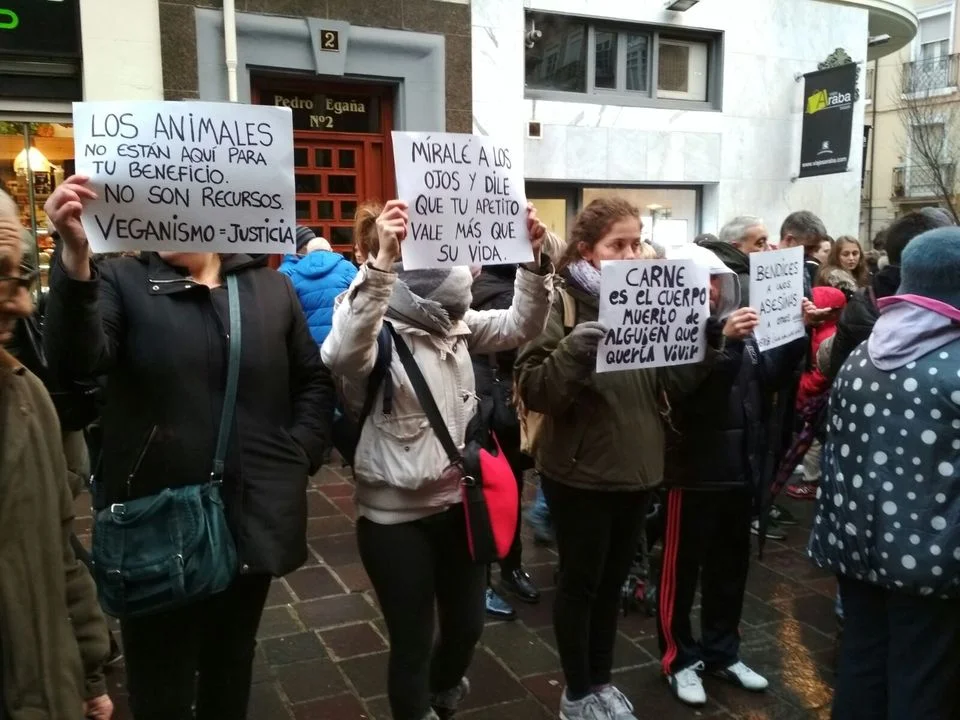 2
Pedro Egaña
Nº2
Araba
www.viajesaraba.com
LOS ANIMALES
NO ESTÁN AQUÍ PARA
TU BENEFICIO.
NO SON RECURSOS.
VEGANISMO = JUSTICIA
MÍRALE A LOS
OJOS Y DILE
QUE TU APETITO
VALE MÁS QUE
SU VIDA.
CARNE
es EL CUERPO
MUERTO de
ALGUIEN QUE
QUERÍA VIVIR
BENDICES
A UNOS
ASESINAS
A OTROS